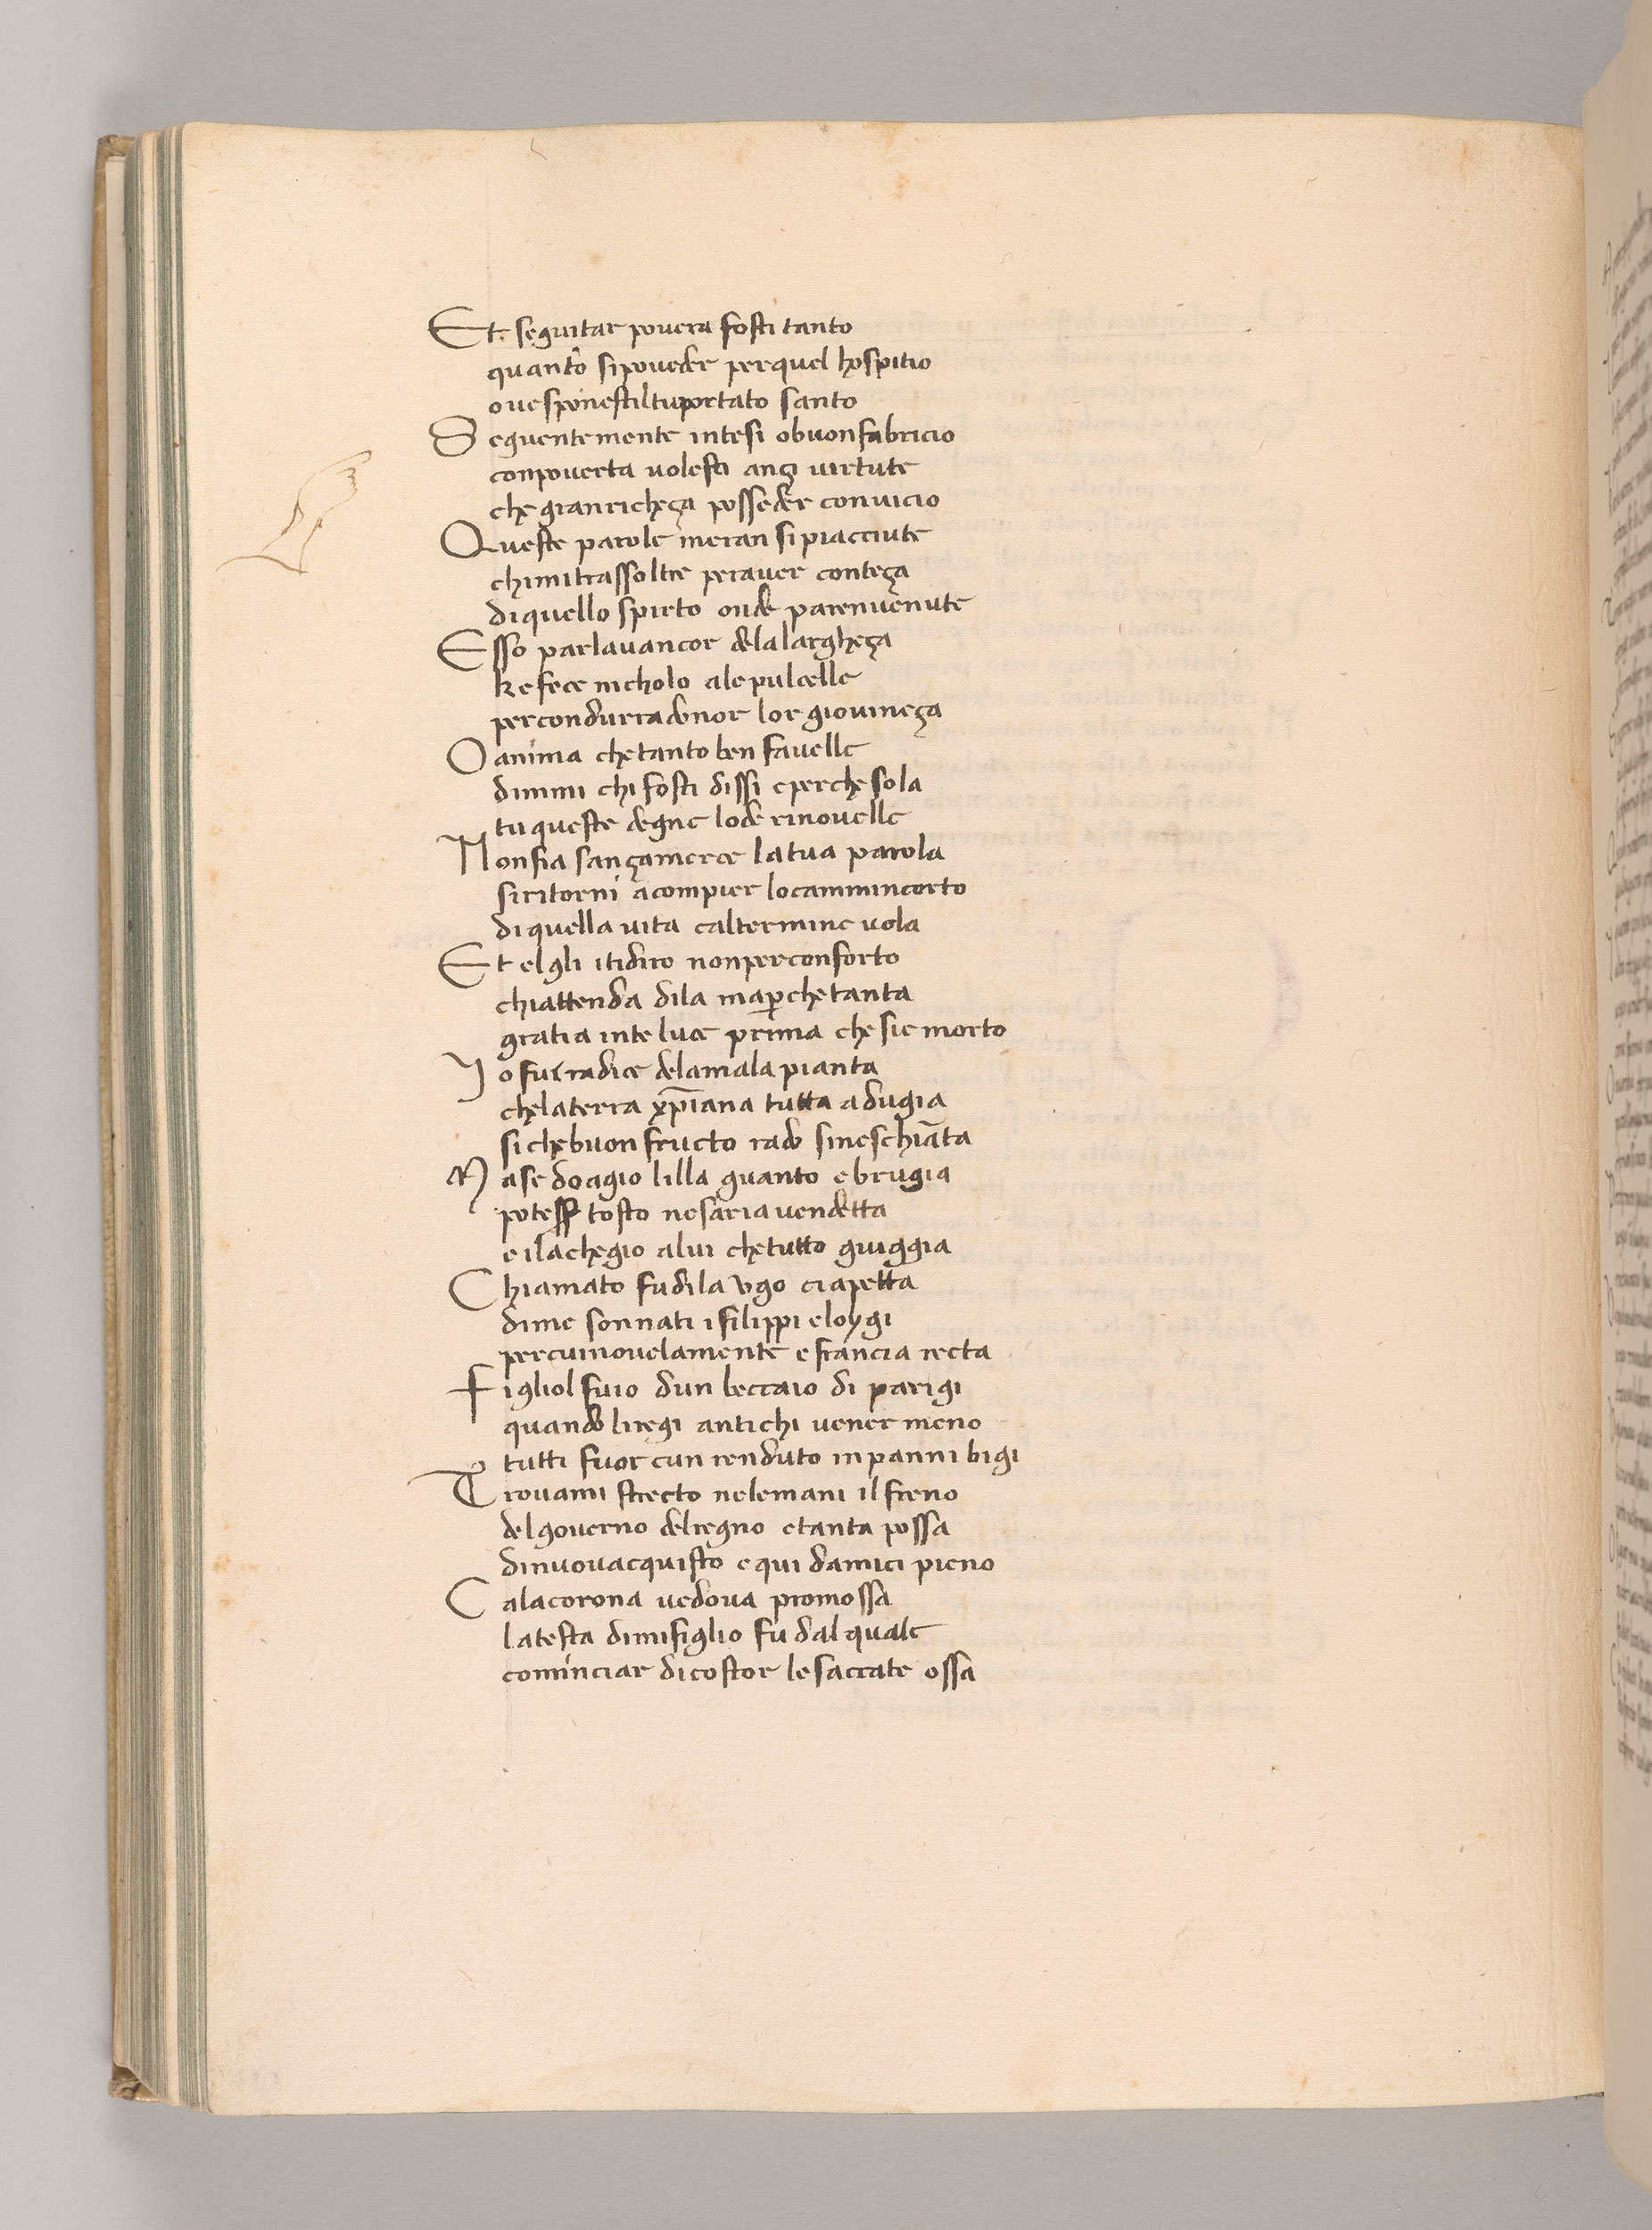 Et seguitar povera fosti tanto
quanto sipoveder perquel hospitio
ovesponestiltuportato santo
Seguentemente intesi obuonfabricio
conpoverta volesti ançi virtute
che granricheça posseder convicio
Queste parole meran sipiacciute
chimitrassoltre peraver conteça
diquello spirto onde parenvenute
Esso parlavancor delalargheça
ke fece nicholo ale pulcelle
percondurradonor lor giovineça
O anima chetanto ben favelle
dimmi chi fosti dissi eperche sola
tu queste degne lode rinovelle
Nonfia sançamerce latua parola
siritorni acompier locammincorto
diquella vita caltermine vola
Et elgli itidiro nonperconforto
chiattenda dila maperchetanta
gratia inte luce prima che sie morto
Io fui radice delamala pianta
chelaterra xpiana tutta adugia
sichebuon fructo rado sineschianta
Mase doagio lilla guanto ebrugia
potesser tosto nesaria vendetta
eilachegio alui chetutto giuggia
Chiamato fudila vgo ciapetta
dime sonnati ifilippi eloygi
percuinovelamente efrancia recta
Figliol fuio dun beccaio di parigi
quando liregi antichi vener meno
tutti fuor cun renduto inpanni bigi
Trovami strecto nelemani ilfreno
delgoverno delregno etanta possa
dinuovacquisto equi damici pieno
Calacorona vedova promossa
latesta dimifiglio fu dal quale
cominciar dicostor lesacrate ossa